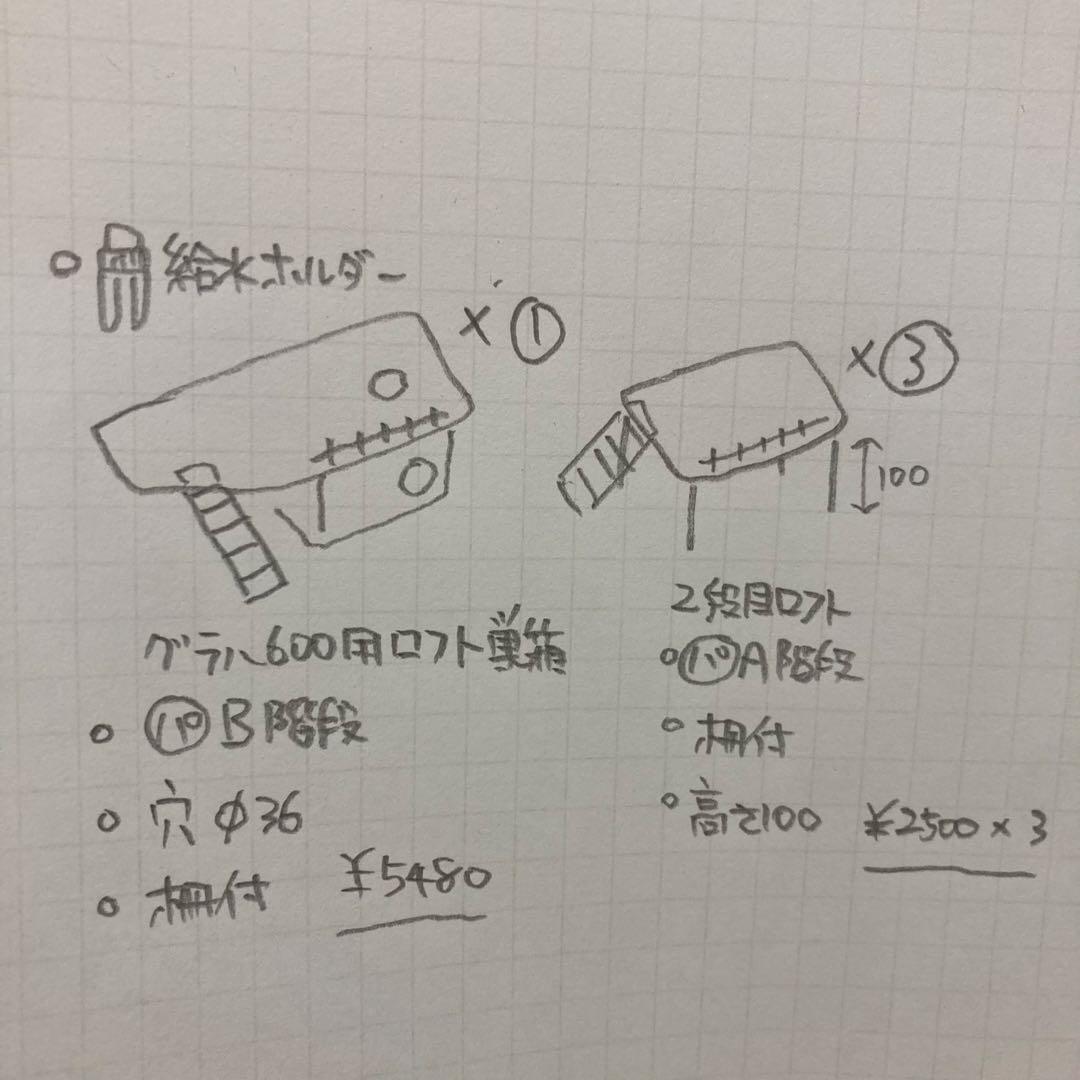 給水ホルダー
×①
×③
100
グラハ600用ロフト巣箱
㋩゚B階段
穴 φ36
柵付
¥5480
2段目ロフト
㋩゚A階段
柵付
高さ100
¥2500×3